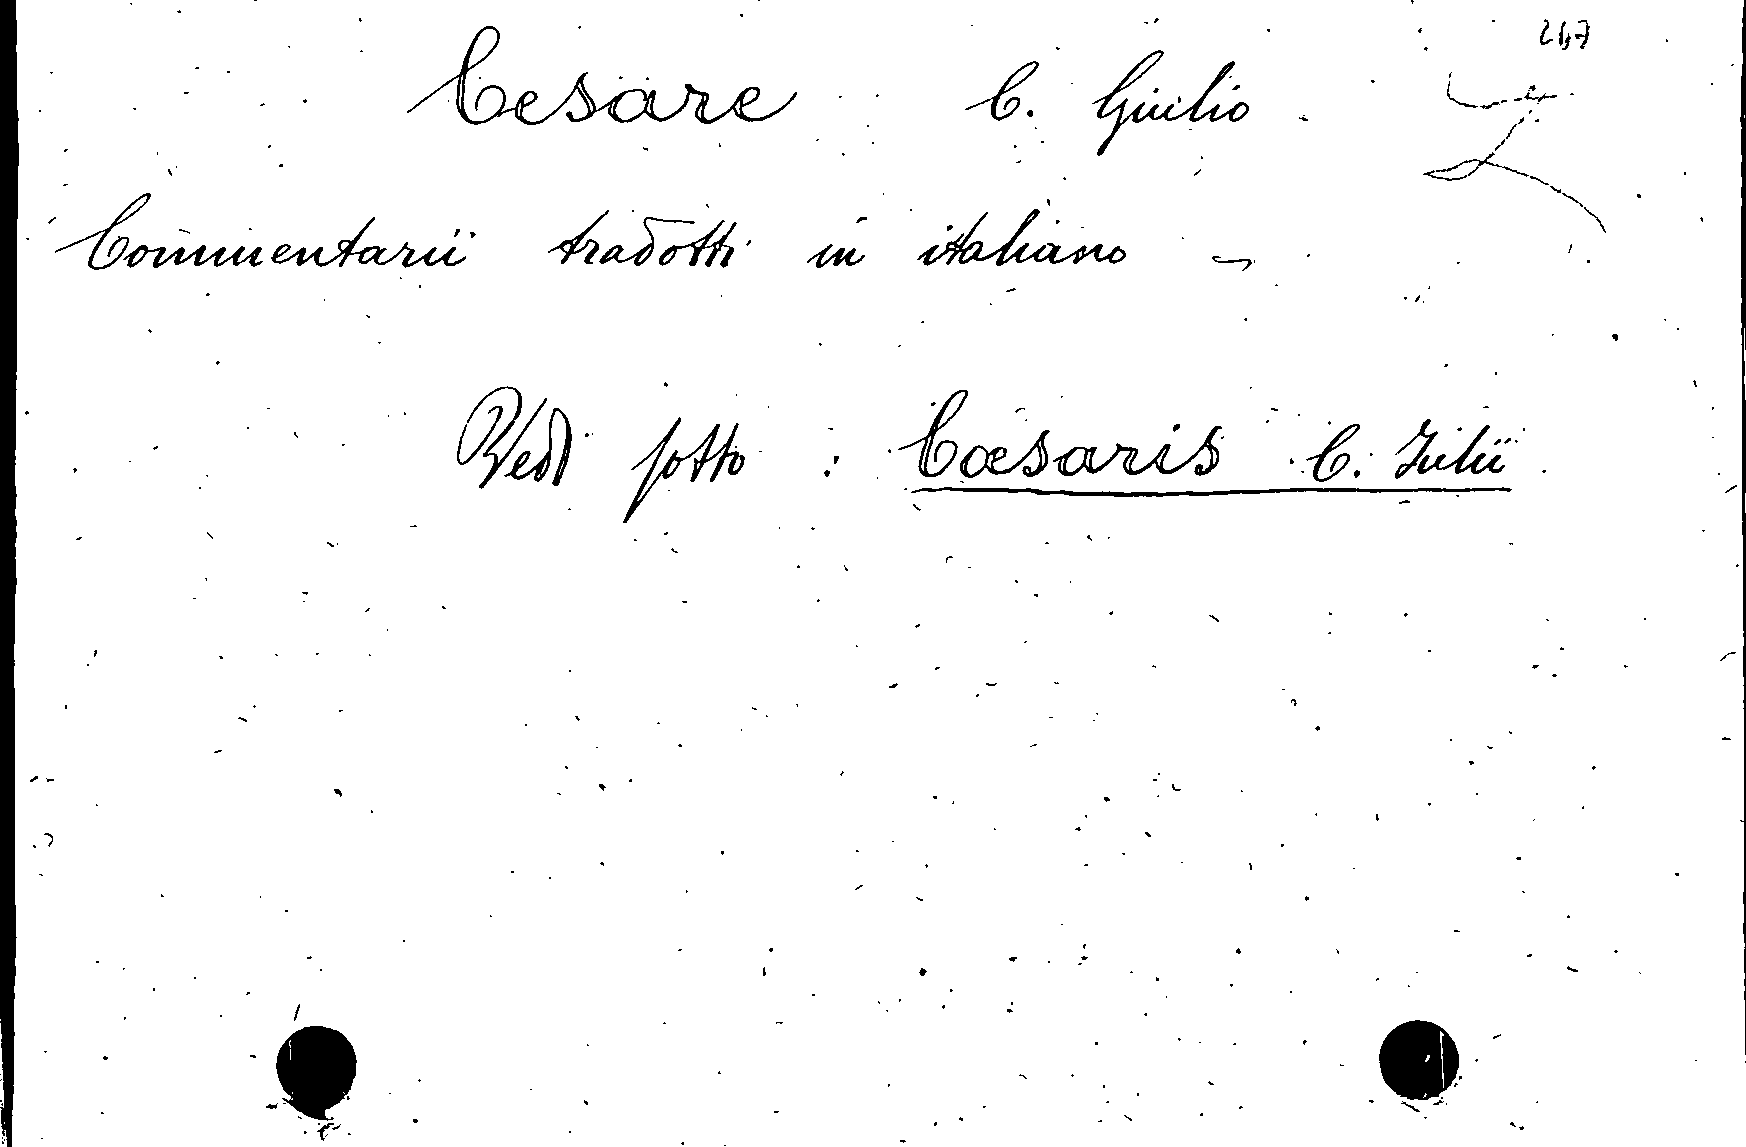 Cesare C. Giulio
Commentarii tradotti in italiano -
Vedi sotto : Cæsaris C. Julii